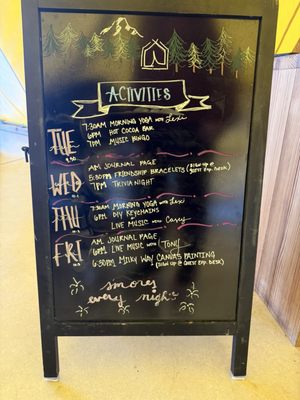 ACTIVITIES
TUE
7:30AM MORNING YOGA WITH Lexi
6PM HOT COCOA BAR
7PM MUSIC BINGO
9.30
WED
AM JOURNAL PAGE
5:30PM FRIENDSHIP BRACELETS (SIGN UP @ GUEST EXP. DESK)
7PM TRIVIA NIGHT
THU
7:30AM MORNING YOGA WITH Lexi
6PM DIY KEYCHAINS
LIVE MUSIC WITH Casey
FRI
AM JOURNAL PAGE
6PM LIVE MUSIC WITH TONY
6:30PM MILKY WAY CANVAS PAINTING
(SIGN UP @ GUEST EXP. DESK)
smores
every night